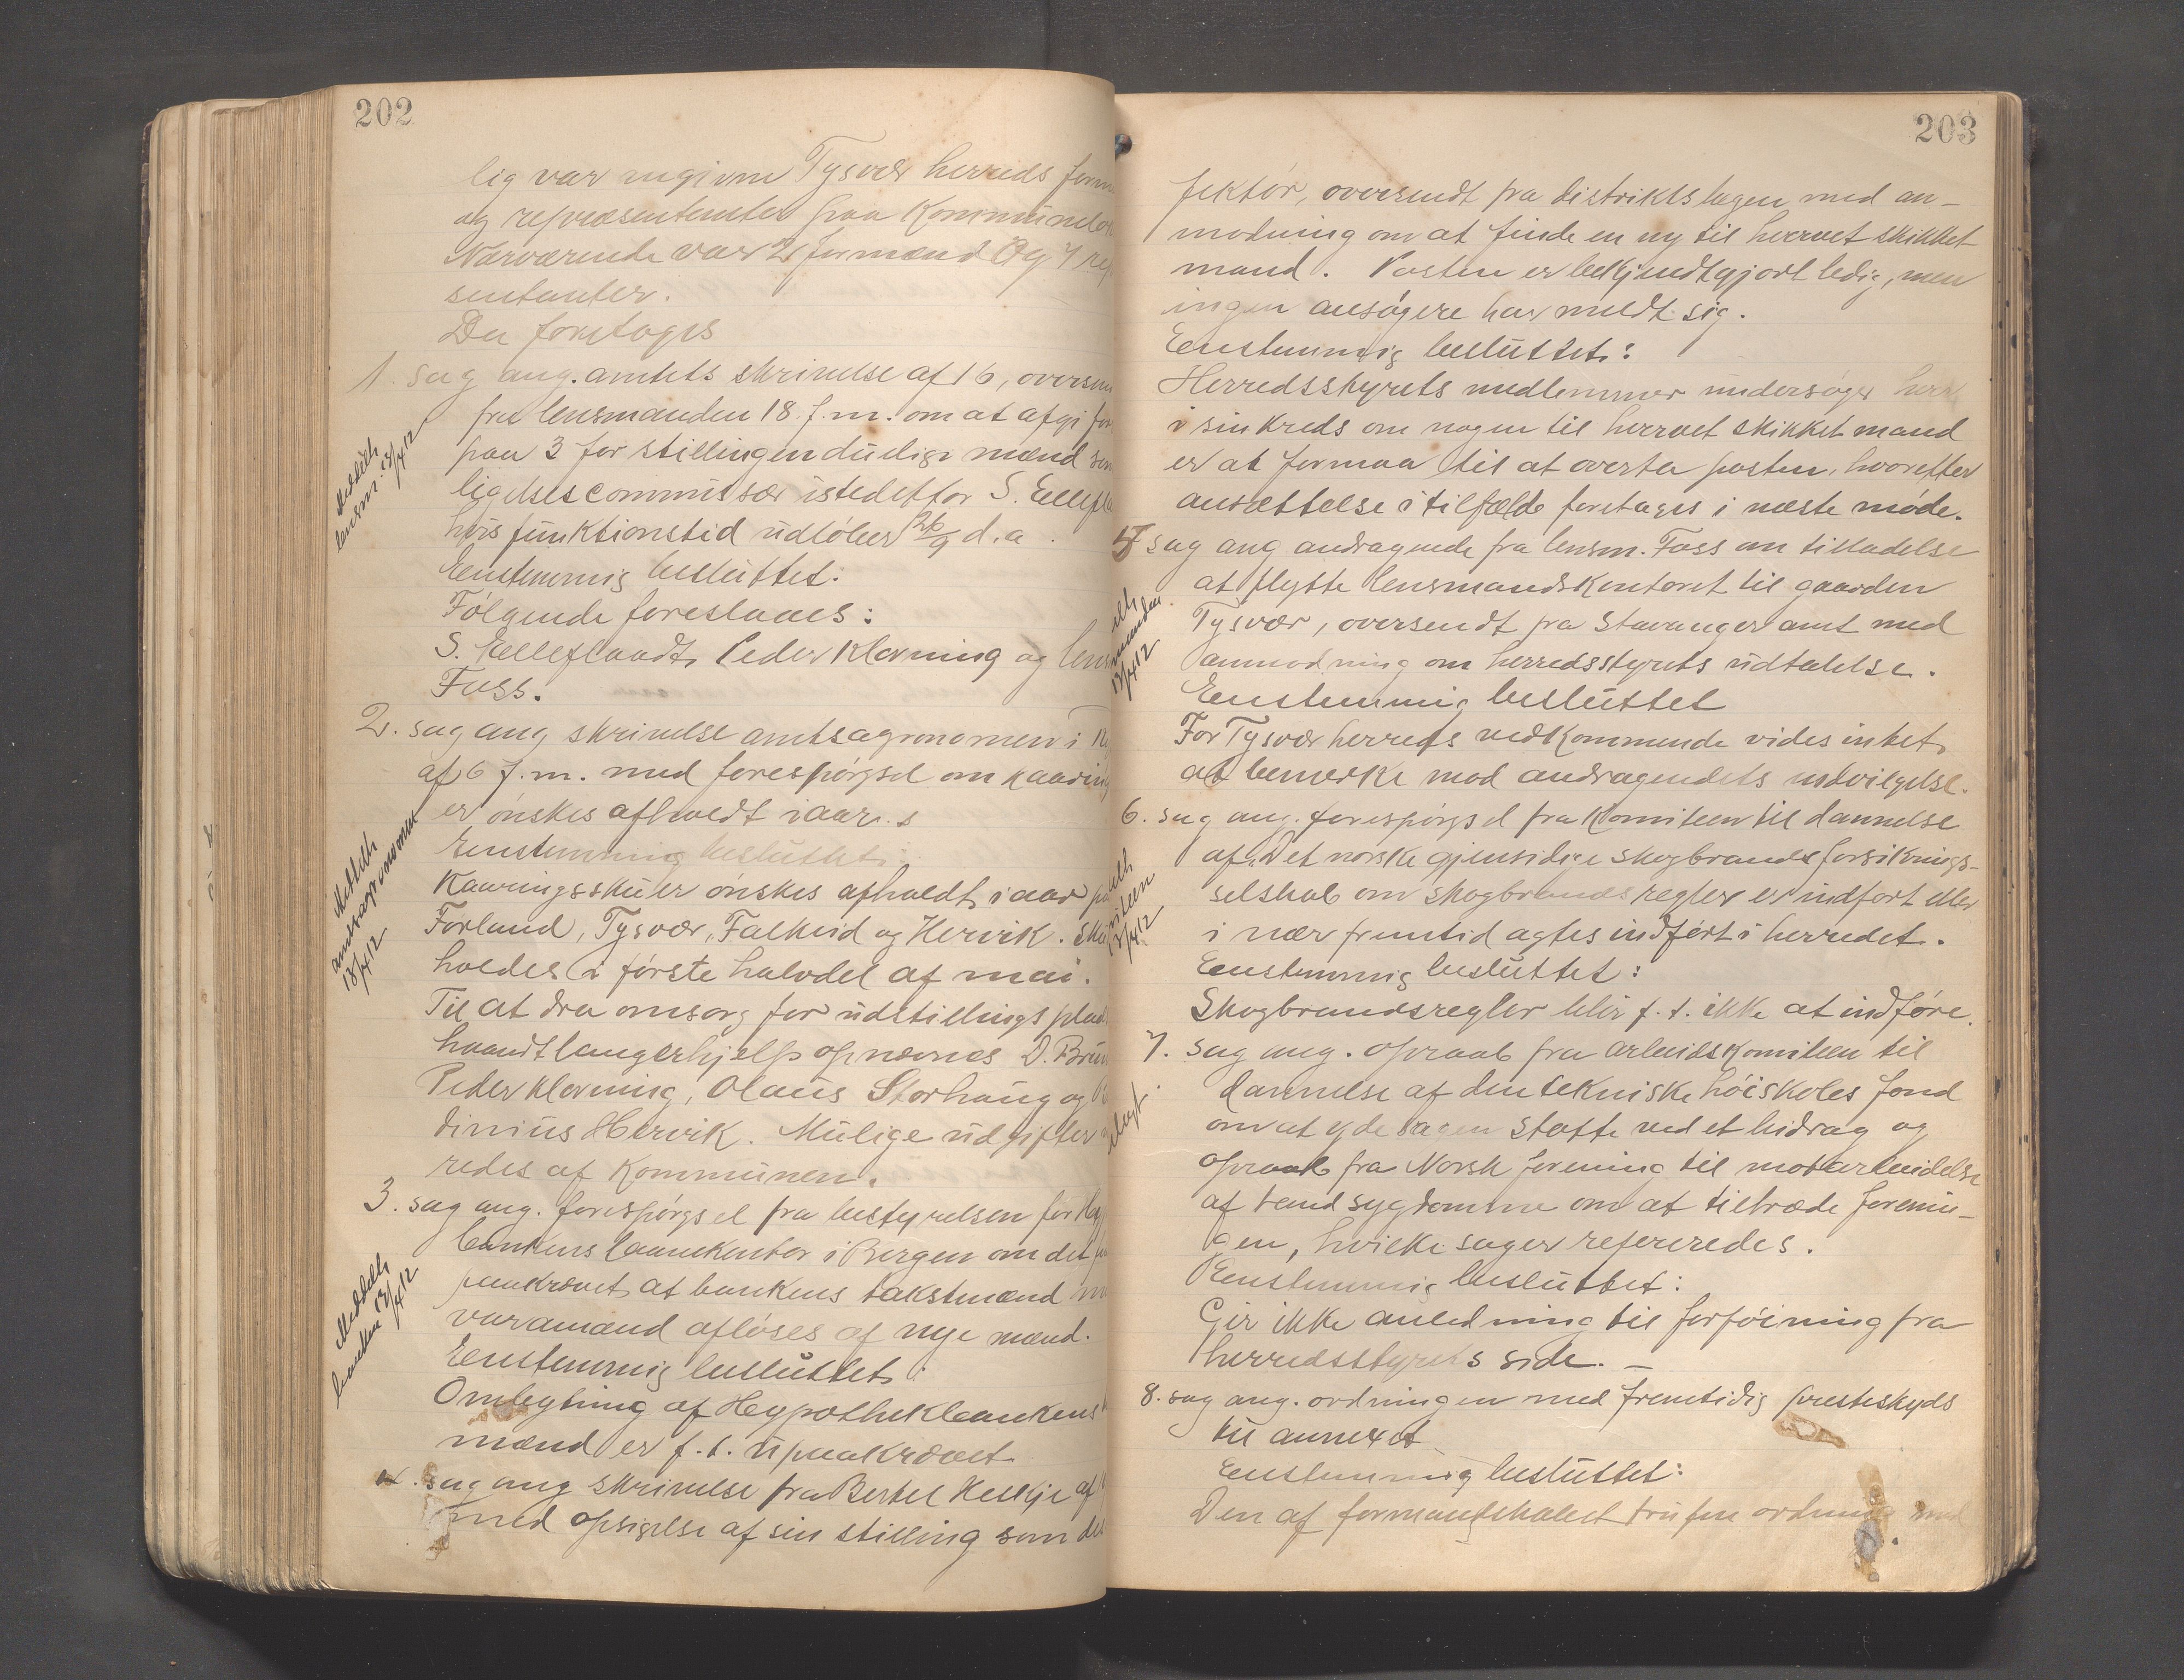 202
lig var Tysvær herreds form
og repræsentanter paa Kommunelok
Nærværende var 2 formænd og 7 rep
sentanter.
Der foretoges
1. sag ang. amtets skrivelse af 16, oversen
fra lensmanden 18 f.m. om at afgi for
paa 3 for stillingen duelige mænd som
ligelsescommissær istedetfor S. Eellefla
hvis funktionstid udløber 26/9 d.a.
Eenstemmig besluttet:
Følgende foreslaaes:
S. Eelleflaadt, Peder Klovning og lens
Foss.
Meddelt
lensm. 13/4 12
2. sag ang skrivelse amtsagronomen i
af 6 f.m. med forespørgsel om kaaring
er ønskes afholdt i aar.
Eenstemmig besluttet:
Kaaringsskuer ønskes afholdt i aar paa
Førland, Tysvær, Falkeid og Hervik. Sku
holdes i første halvdel af mai.
Til at dra omsorg for udstillingsplad
haandtlangerhjelp opnævnes D. Brun
Peder Klovning, Olaus Storhaug og
dinius Hervik. Mulige udgifter
redes af Kommunen.
Meddelt
amtsagronomen
18/4 12
3. sag ang. forespørgsel fra bestyrelsen for Hy
bankens laanekontor i Bergen om det
paakrævet at bankens takstmænd
varamænd afløses af nye mænd.
Eenstemmig besluttet:
Ombytning af Hypothekbankens
mænd er f.t. upaakrævet.
Meddelt
banken 13/4 12
4. sag ang skrivelse fra Bertel Helkje af
med opsigelse af sin stilling som des
203
fektør, oversendt fra distriktslægen med an-
modning om at finde en ny til hvervet skikket
mand. Posten er bekjendtgjort ledig, men
ingen ansøgere har meldt sig.
Eenstemmig besluttet:
Herredsstyrets medlemmer undersøger hver
i sin kreds om nogen til hvervet skikket mand
er at formaa til at overta posten, hvorefter
ansættelse i tilfælde foretages i næste møde.
5 sag ang andragende fra lensm. Foss om tilladelse
at flytte lensmandskontoret til gaarden
Tysvær, oversendt fra Stavanger amt med
anmodning om herredsstyrets udtalelse.
Eenstemmig besluttet
For Tysvær herreds vedkommende vides intet
at bemerke mod andragendets indvilgelse.
elt
manden
13/4 12
6. sag ang. forespørgsel fra Komiteen til dannelse
af "Det norske gjensidige skogbrandsforsikrings-
selskab om skogbrandsregler er indført eller
i nær fremtid agtes indført i herredet.
Eenstemmig besluttet:
Skogbrandsregler blir f.t. ikke at indføre.
elt
miteen
13/4 12
7. sag ang. opraab fra arbeidskomiteen til
dannelse af den tekniske høiskoles fond
om at yde sagen støtte ved et bidrag og
opraab fra Norsk forening til motarbeidelse
af tandsygdomme om at tiltræde forenin-
gen, hvilke sager refereredes.
Eenstemmig besluttet:
Gir ikke anledning til forføining fra
herredsstyrets side. —
elagt.
8. sag ang. ordningen med fremtidig presteskyds
til annexet
Eenstemmig besluttet:
Den af formandskabet trufne ordning med